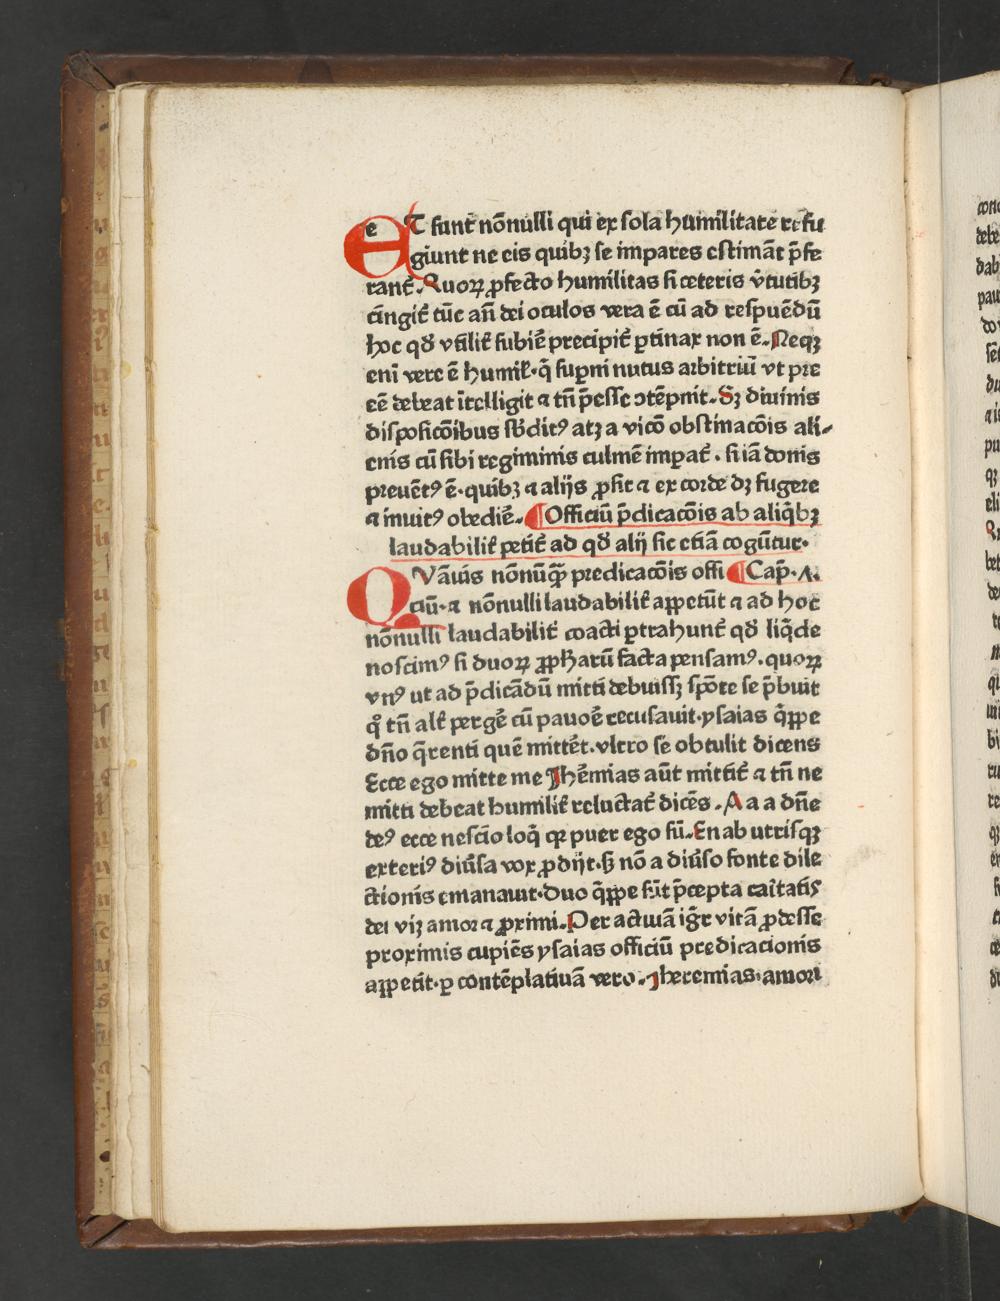 eT sunt nōnulli qui ex sola humilitate refu
giunt ne eis quibꝫ se impares estimāt p̄fe
rant᷑. Quoꝝ ꝓfecto humilitas si ceteris v̓tutibꝫ
cingit᷑ tūc an̄ dei oculos vera ē cū ad respuēdū
hoc qđ vtilit᷑ subiē precipit᷑ ꝑtinax non ē. Neqꝫ
enī vere ē humil̓· q̄ suꝑni nutus arbitriū vt pre
eē debeat ītelligit ⁊ tn̄ p̄esse ↄtēpnit. Sꝫ diuinis
disposicōibus sb̓ditꝰ atꝫ a vicō obstinacōis ali-
enis cū sibi regiminis culmē imꝑat᷑. si iā donis
preuētꝰ ē· quibꝫ ⁊ alijs ꝓsit ⁊ ex corde dꝫ fugere
⁊ inuitꝰ obediē. ¶ Officiū p̄dicacōis ab aliq̄bꝫ
laudabilit᷑ petit᷑ ad qđ alij sic etiā cogūtur·
QVāuis nōnūꝙ̄ predicacōis offi ¶ Cap̄. Λ.
ciū· ⁊ nōnulli laudabilit᷑ appetūt ⁊ ad hoc
nōnulli laudabilit᷑ coacti ꝑtrahunt᷑ qđ liq̄de
noscimꝰ si duoꝝ ꝓph̄arū facta pensamꝰ. quoꝝ
vnꝰ ut ad p̄dicādū mitti debuissꝫ spōte se p̄buit
qͦ tn̄ alt᷑ pergē cū pauoē recusauit· ysaias q̄ppe
dn̄o q̄renti quē mittēt. vltro se obtulit dicens
Ecce ego mitte me Jhēmias aūt mittit᷑ ⁊ tn̄ ne
mitti debeat humilit᷑ reluctat᷑ dicēs. A a a dn̄e
deꝰ ecce nescio loq̄ qꝛ puer ego sū. En ab utrisqꝫ
exteriꝰ diūsa vox ꝓdijt· sꝫ nō a diūso fonte dile
ctionis emanauit· Duo q̄ppe sūt p̄cepta caītatis
dei viꝫ amor ⁊ ꝓximi. Per actiuā igr̄ vitā ꝓdesse
proximis cupiēs ysaias officiū predicacionis
appetit· ꝑ contēplatiuā vero. Jheremias amori